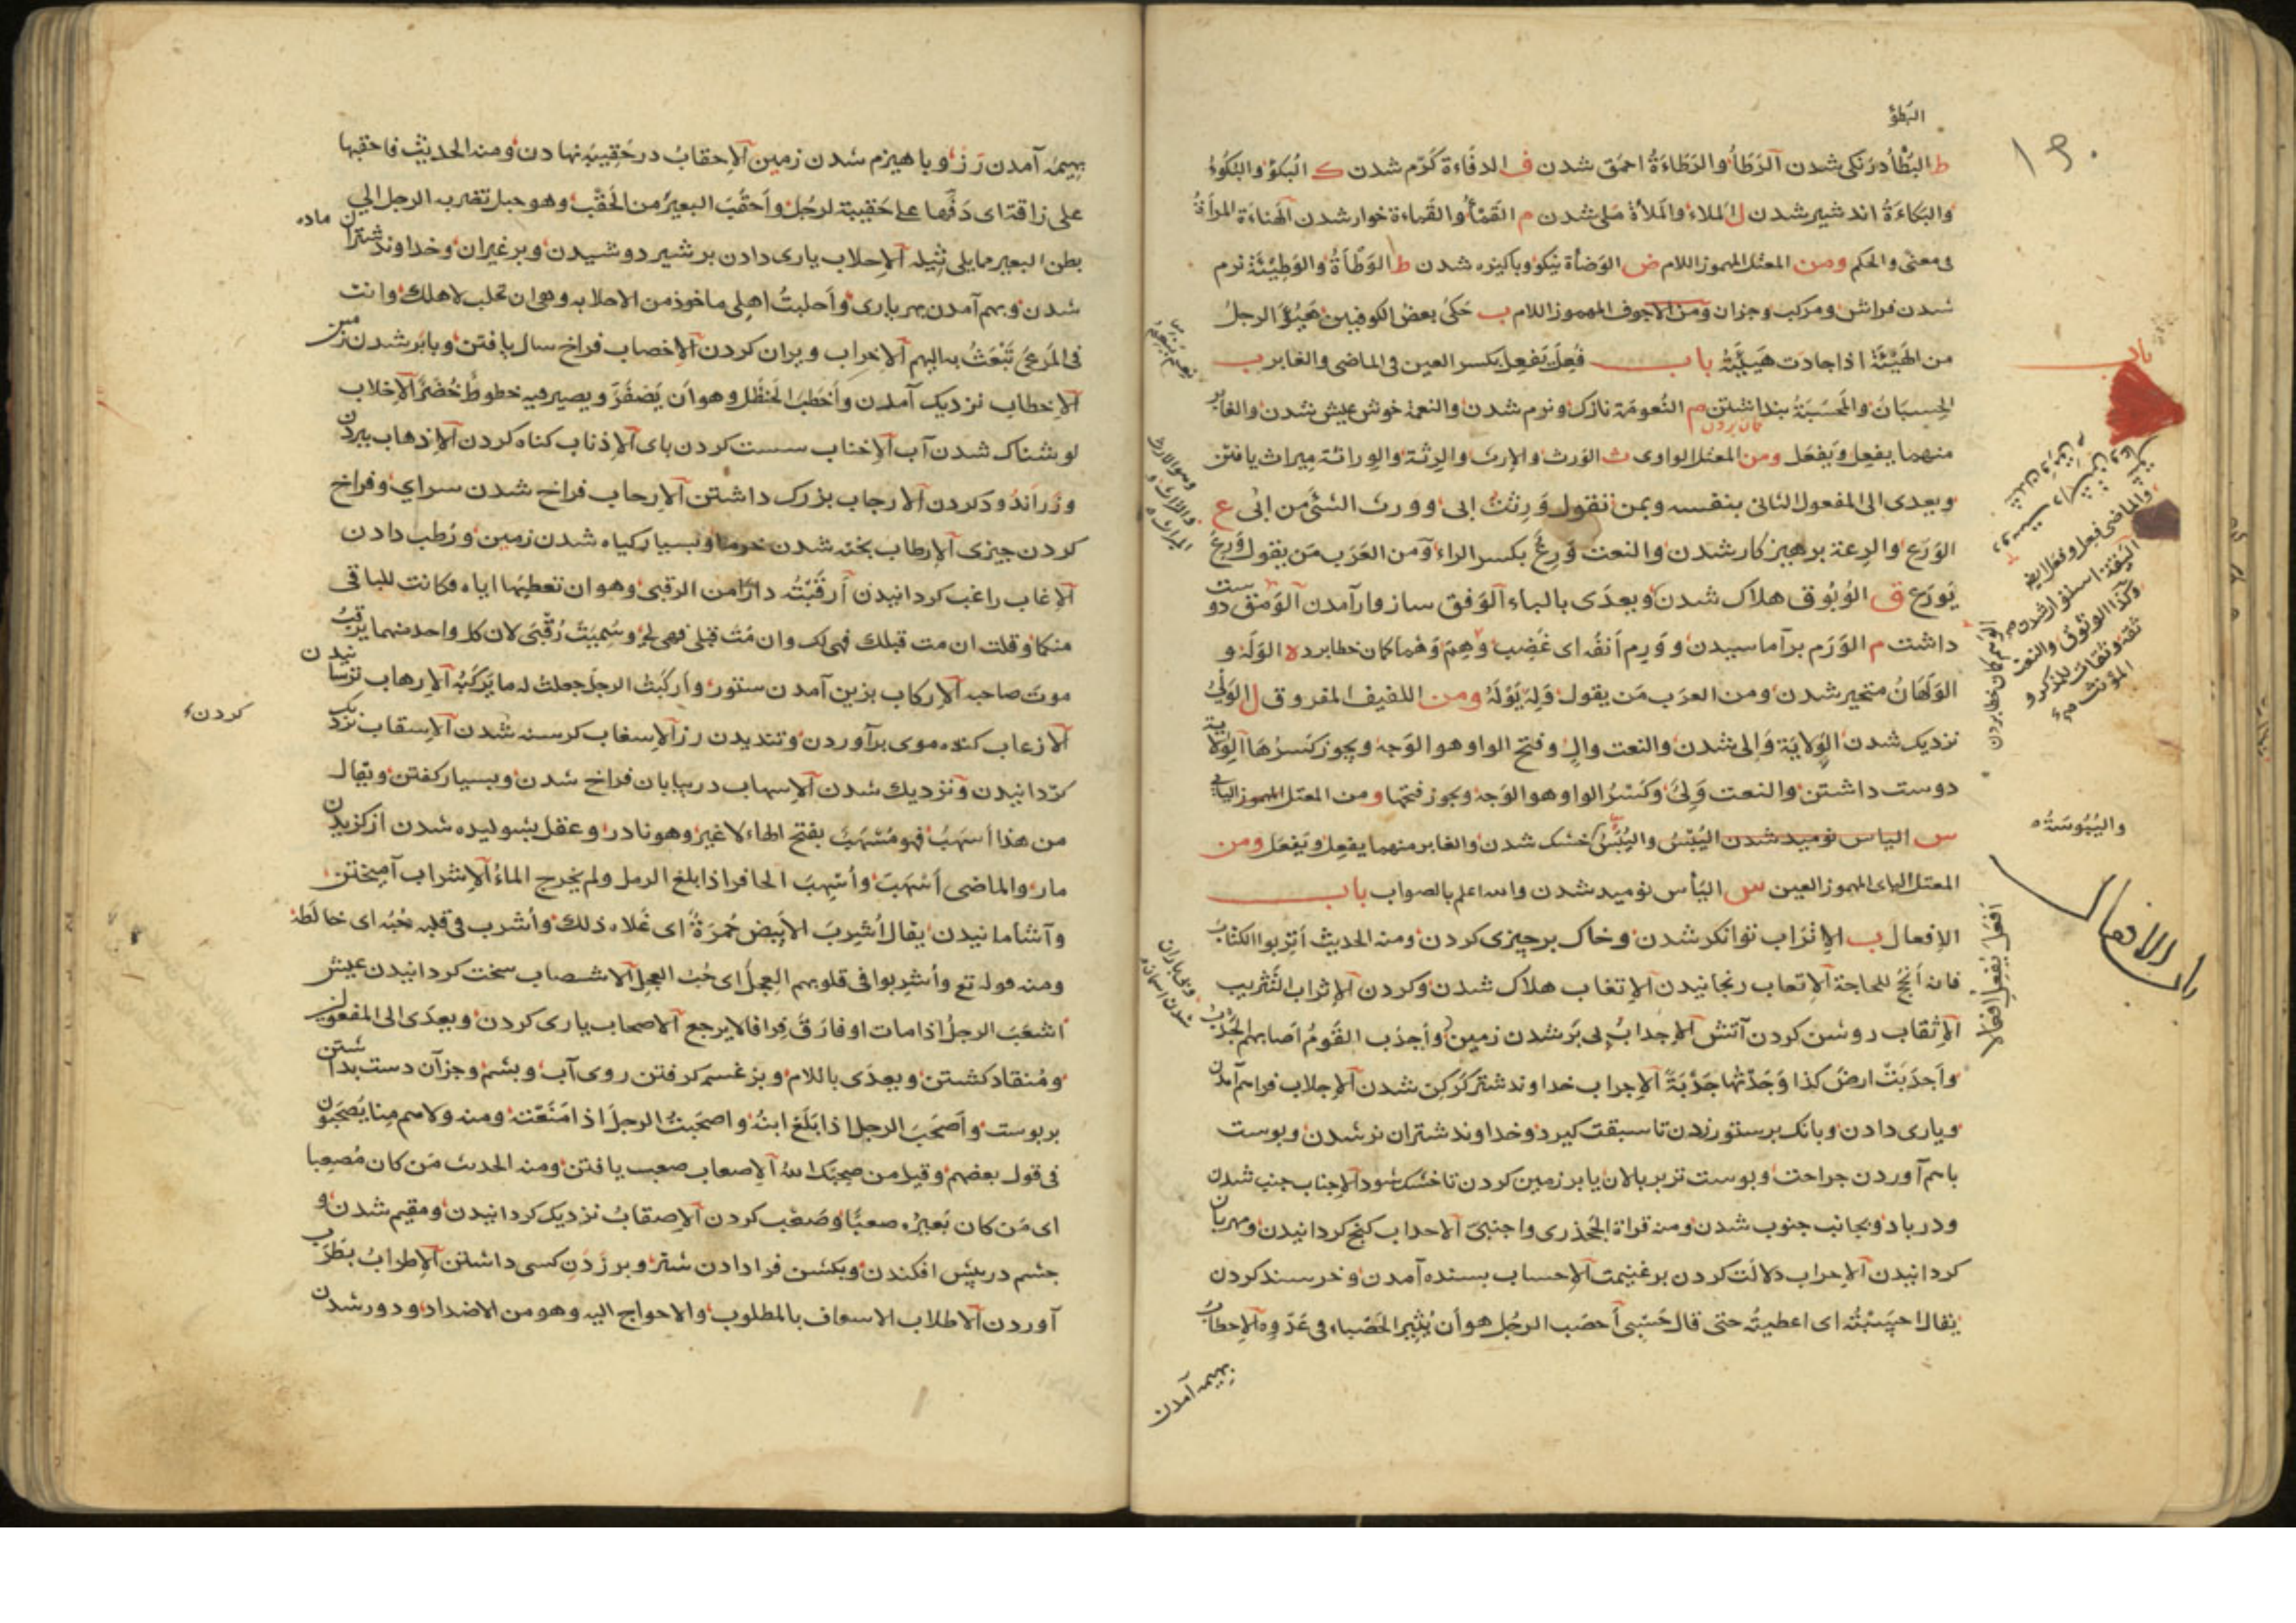 البَطؤ
ط البُطْأ درنكى شدن الرَطَأُ والرَطَاءَةُ احمق شدن ف الدفَاءة كَرْم شدن ك البُكوْ والبُكُوءُ
والبَكاءَةُ اندشير شدن ل المَلاء والمَلأة مَلى شدن م القَمْأُ والقَماءة خوار شدن الهناءَة المرأةُ
فى معنى والحكم ومن المعتل المهموز اللام ض الوَضأة نيكو وپاكيزه شدن ط الوَطَأَةُ والوَطِيْئَةُ نرم
شدن فراش ومركب وجزان ومن الاجوف المهموز اللام ب حَكىَ بعضُ الكوفيين هَيُؤَ الرجلُ
من الهَيْئَةِ اذا جادت هَيْئَتُهُ باب فَعِلَ يَفعِلُ بكسر العين فى الماضى والغابر ب
الحِسبَانُ والمَحسَبَةُ بنداشتن م النُعومَة نازك ونرم شدن والنعمة خوش عيش شدن والغابر
كمان بردن
منهما يفعِل ويَفعَل ومن المعتل الواوى ث الوَرث والإرث والرِثة والوِراثة ميراث يافتن
ويعدى الى المفعول الثانى بنفسه وبمن نقول وَرِثتُ ابى وورث الشئ من ابى ع
الوَرَع والرِعة برهيزكار شدن والنعت وَرِعٌ بكسر الراء ومن العَرَب مَن يقول وَرِعَ
يَورَع ق الوُبُوق هلاك شدن ويعدَى بالباء الوَفق سازوار آمدن الوَمق دوست
داشت م الوَرَم برآماسيدن ووَرِم أنفُه اى غَضِبَ وَهِمَ وَهْما كان خطا برد ه الوَلَه و
الوَلَهَانُ متحير شدن ومن العرب مَن يقول وَلِهَ يَوْلَهُ ومن اللفيف المفروق ل الوَلْىُ
نزديك شدن الوِلايَة وَالى شدن والنعت والٍ وفتح الواو هو الوَجه ويجوز كَسرُهَا الوَلاية
دوست داشتن والنعت وَلِىٌ وكَسْرُ الواو هو الوَجه ويجوز فتحها ومن المعتل المهموز اليائى
س الياس نوميد شدن اليُبْسُ واليَبَسُ خشك شدن والغابر منهما يفعِل ويَفعَل ومن
المعتل اليائى المهموز العين س اليَأس نوميد شدن والله اعلم بالصواب باب
الإفعال ب الإتراب توانكر شدن وخاك برچيزى كردن ومنه الحديث أتْرِبوا الكتابَ
فانه أنجَحُ للحاجة الإتعاب رنجانيدن الإتغاب هلاك شدن وكردن الإثراب التَثريب
الإثقاب روشن كردن آتش الإجدابُ بى بَر شدن زمين وأجدَب القَومُ اَصابهم الجَدْبُ
وأجدَبتُ ارضَ كذا وَجَدتُها جَدْبَةً الإجراب خداوند شتر كَرْكِن شدن الإجلاب فراهم آمدن
ويارى دادن وبانك بر ستور زدن تا سبقت كيرد وخداوند شتران نر شدن وپوست
باهم آوردن جراحت وپوست تر بر پالان يا بر زمين كردن تا خشك شود الإجناب جنب شدن
ودر باد وبجانب جنوب شدن ومنه قراة الجَحدَرى واجنِبْنى الاحداب كنج كردانيدن ومهربان
كردانيدن الإحراب دلالت كردن بر غنيمت الإحساب بسنده آمدن وخرسند كردن
يقال احسَبْتُه اى اعطيتُه حتى قال حَسْبِى أحصَب الرجُل هو أن يُثِير الحَصْباء فى عَدْوِه الإحطابُ
بهيمه آمدن
باب
والماضى فعِل وفعَل ايضا
الثِقَة استوار شدن
وكذا الوثوق والنعت
ثقة وثقات للذكر و
المؤنث
الوَهم كمان خطا بردن
واليُبُوسَة
باب الافعال
اَفعَلَ يُفعِلُ اِفعَال
بهيمه آمدن رَز وباهيزم شدن زمين الإحقابُ در حَقِيبَه نهادن ومنه الحديث فاحقبها
على ناقة اى دَفّها على حَقِيبَة لرجُل وأحقَبَ البعيرَ من الحَقَب وهو حبل تضرب الرجل الى
بطن البعير مما يلى ثِيله الإحلاب يارى دادن بر شير دوشيدن وبرغيران وخداوند شتران ماده
شدن وبهم آمدن بهر يارى وأحلبتُ اهلى ماخوذ من الاحلابه وهى ان تحلب لاهلك وانت
فى المَرعَى تَبْعَثُ به اليهم الإخراب ويران كردن الإخصاب فراخ سال يافتن وبابَر شدن زمين
الإخطاب نزديك آمدن وأخطَبَ الحَنظَل وهو أن يَصْفَرَّ ويصير فيه خطوط خُضْر الإخلاب
لوشناك شدن آب الإخناب سست كردن پاى الإذناب كناه كردن الإذهاب ببردن
وزراندود كردن الارجاب بزرك داشتن الإرحاب فراخ شدن سراى وفراخ
كردن چيزى الإرطاب پخته شدن خرما وبسيار كياه شدن زمين ورُطب دادن
الإرغاب راغب كردانيدن أرقَبْتُه دارًا من الرقبى وهو ان تعطيها اياه فكانت للباقى
منكما وقلت ان مت قبلك فهى لك وان مُتَّ قبلى فهى لى وسُمِيَتْ رُقْبَى لان كل واحد منهما يَرقُبُ
موت صاحبه الإركاب بزين آمدن ستور وأركَبْتُ الرجلَ جعلت له ما يَركَبُه الإرهاب ترسانيدن
الازعاب كنده موى برآوردن وتنديدن رز الإسغاب كرسنه شدن الإسقاب نزديك
كردانيدن ونزديك شدن الإسهاب در بيابان فراخ شدن وبسيار كفتن ويقال
من هذا أسهَبَ فهو مُسْهَب بفتح الهاء لا غير وهو نادر وعقل بشوليده شدن از كزيدن
مار والماضى أسْهَبَ وأُسْهِبَ الحافر اذا بلغ الرمل ولم يخرج الماءُ الإشراب آميختن
وآشامانيدن يقال أُشْرِبَ الأبيض حُمرَةً اى عَلاه ذلك وأُشرب فى قلبه حُبُه اى خالَطَهُ
ومنه قوله تع وأُشرِبوا فى قلوبهم العِجلَ اى حُبَ العِجل الاشصاب سخت كردانيدن عيش
اشعَبَ الرجلُ اذا مات او فارَقَ فِراقًا لا يرجع الاصحاب يارى كردن ويعدَى الى المفعول
ومُنقاد كشتن ويعدَى باللام وبزغسمه كرفتن روى آب وپشم وجزآن دست بداشتن
بر پوست وأصحَبَ الرجل اذا بَلَغ ابنُه واصحَبتُ الرجلَ اذا مَنَعْتَه ومنه ولاهم مِنا يُصحَبون
فى قول بعضهم وقيل من صحِبَكَ اللهُ الإصعاب صعب يافتن ومنه الحديث مَن كان مُصعِبا
اى مَن كان بَعيرُه صعبًا وصَعْب كردن الإصقابُ نزديك كردانيدن ومقيم شدن و
چشم در پيش افكندن وبكشن فرادادن شتر وبر زدن كسى داشتن الإطرابُ بطَرَب
آوردن الاطلاب الاسعاف بالمطلوب والاحواج اليه وهو من الاضداد ودور شدن
كردن